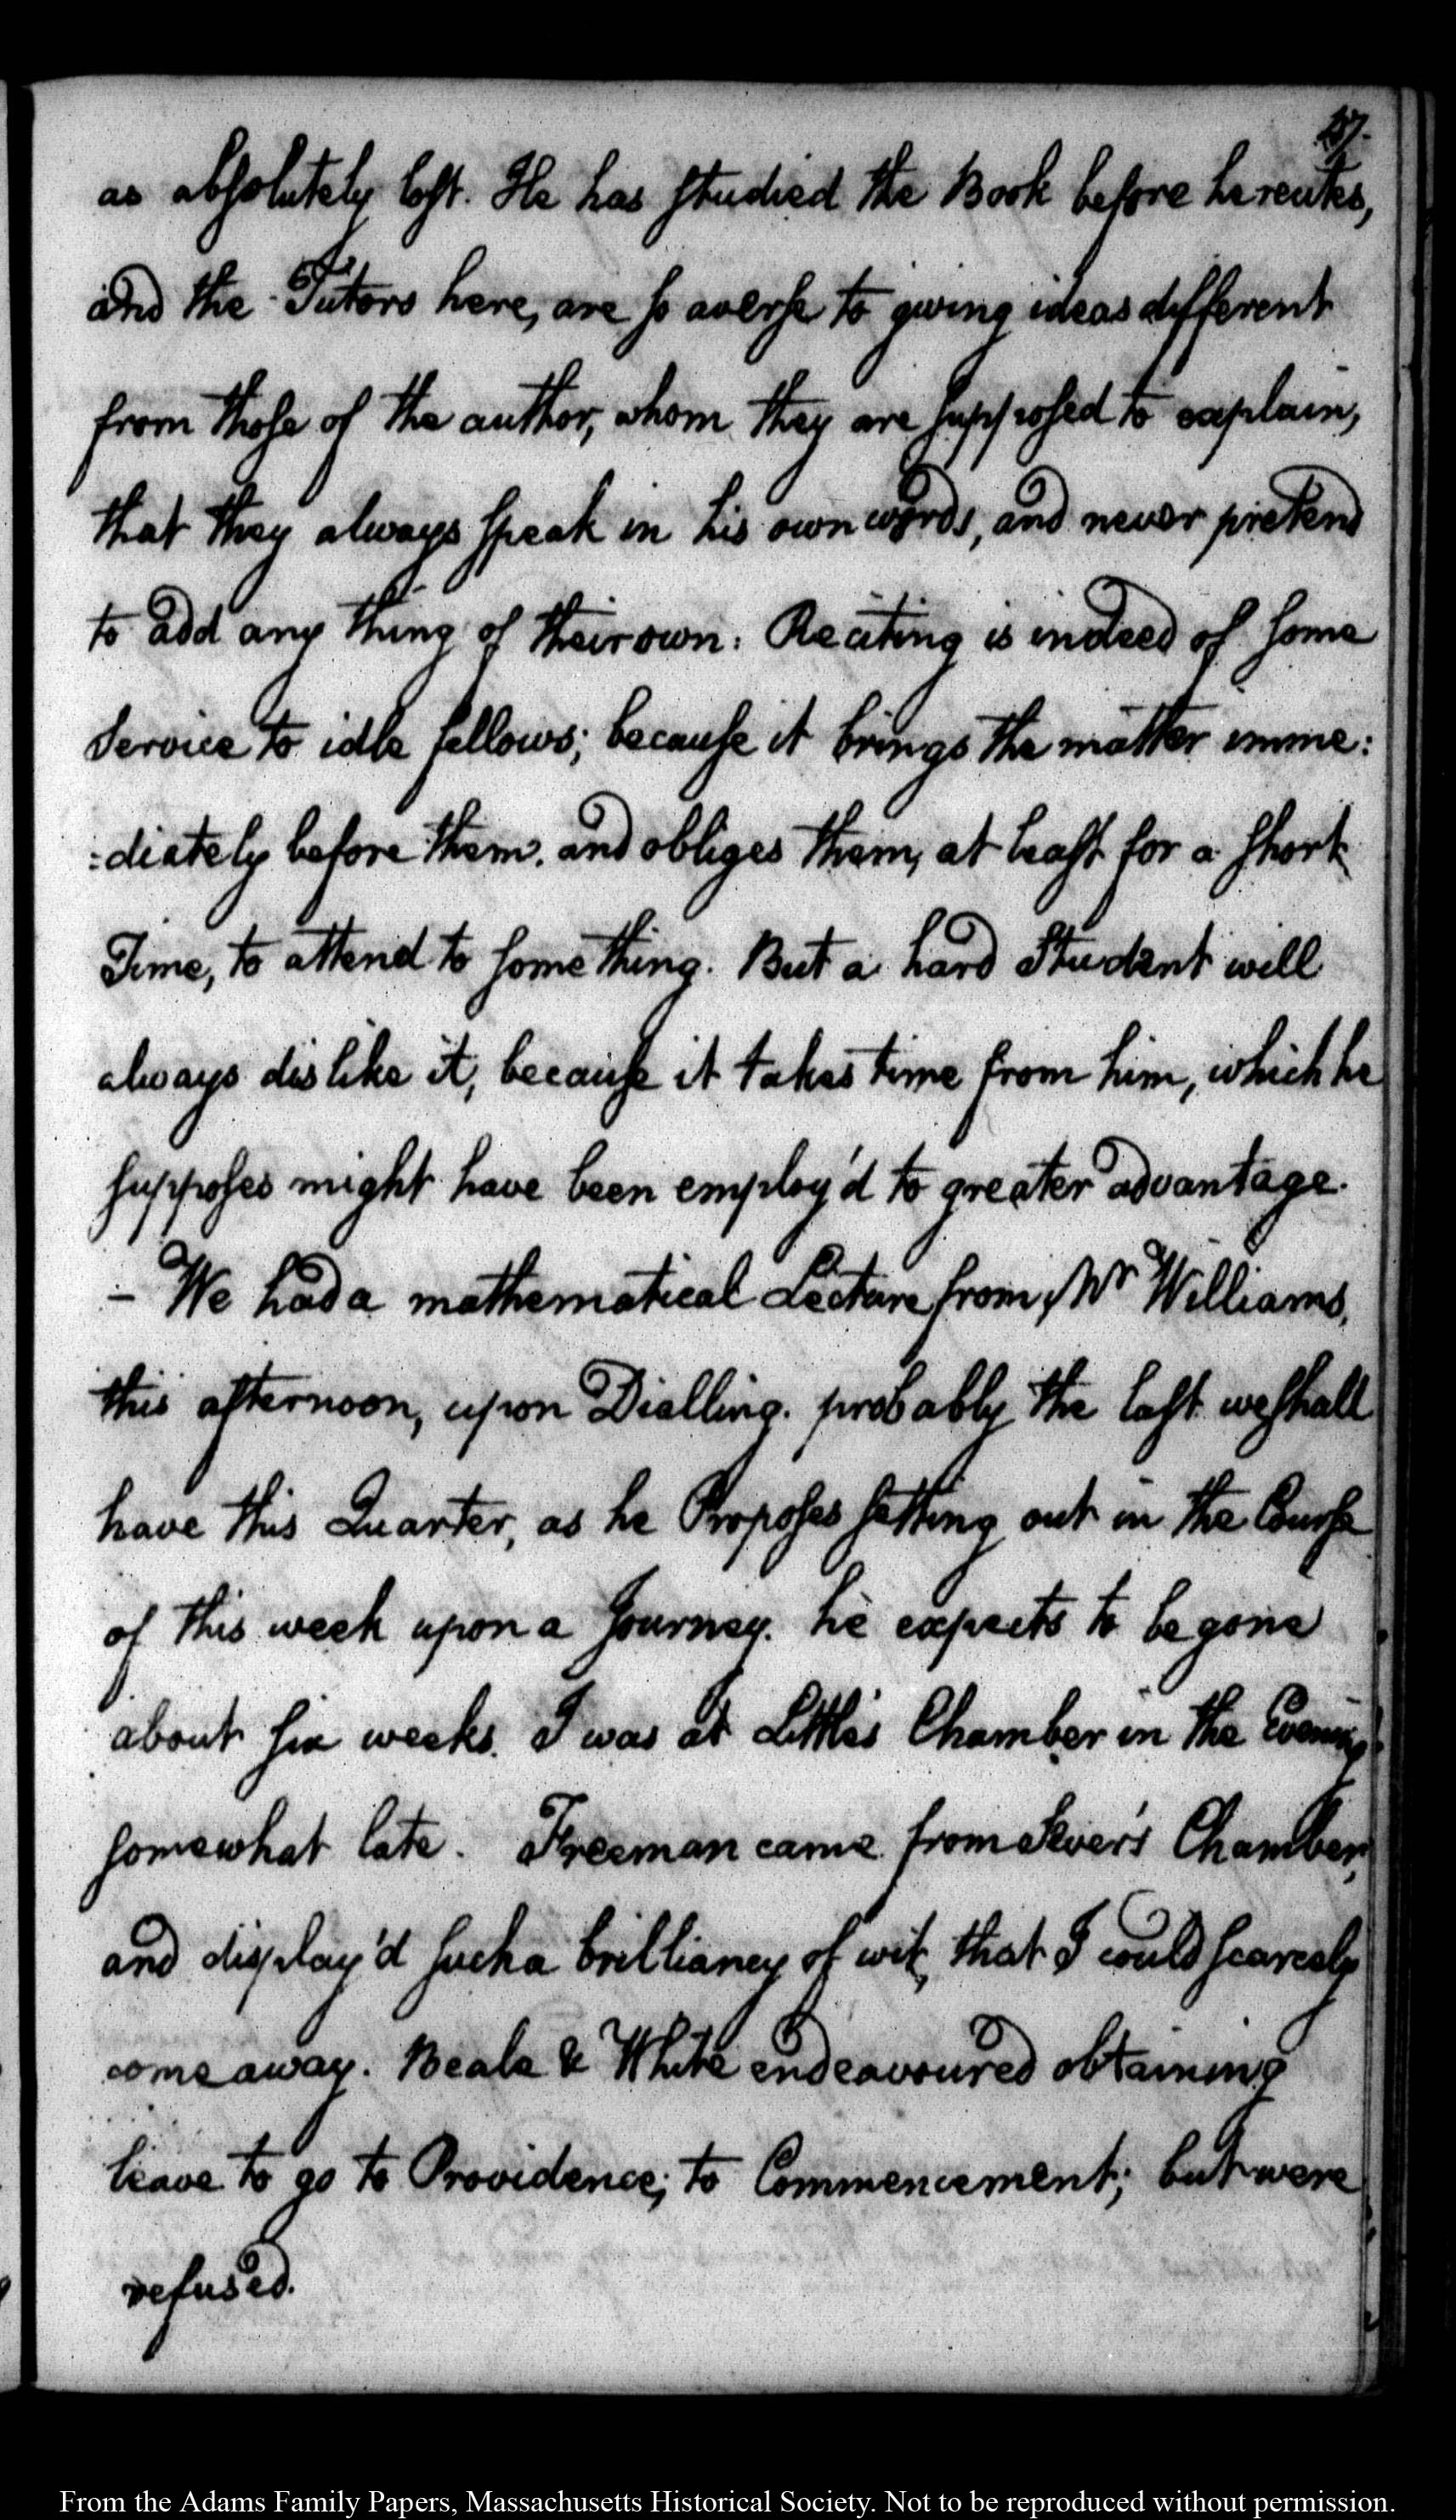 as absolutely lost. He has studied the Book before he recites,
and the Tutors here, are so averse to giving ideas different
from those of the author, whom they are supposed to explain,
that they always speak in his own words, and never pretend
to add any thing of their own. Reciting is indeed of some
Service to idle fellows; because it brings the matter imme:
:diately before them, and obliges them, at least for a short
Time, to attend to something. But a hard Student will
always dislike it, because it takes time from him, which he
supposes might have been employ'd to greater advantage.
– We had a mathematical Lecture from Mr Williams,
this afternoon, upon Dialling. probably the last we shall
have this Quarter, as he Proposes setting out in the Course
of this week upon a Journey. he expects to be gone
about six weeks. I was at Little's Chamber in the Evening
somewhat late. Freeman came from Sever's Chamber,
and display'd such a brilliancy of wit, that I could scarcely
come away. Beale & White endeavoured obtaining
leave to go to Providence, to Commencement; but were
refused.
From the Adams Family Papers, Massachusetts Historical Society. Not to be reproduced without permission.